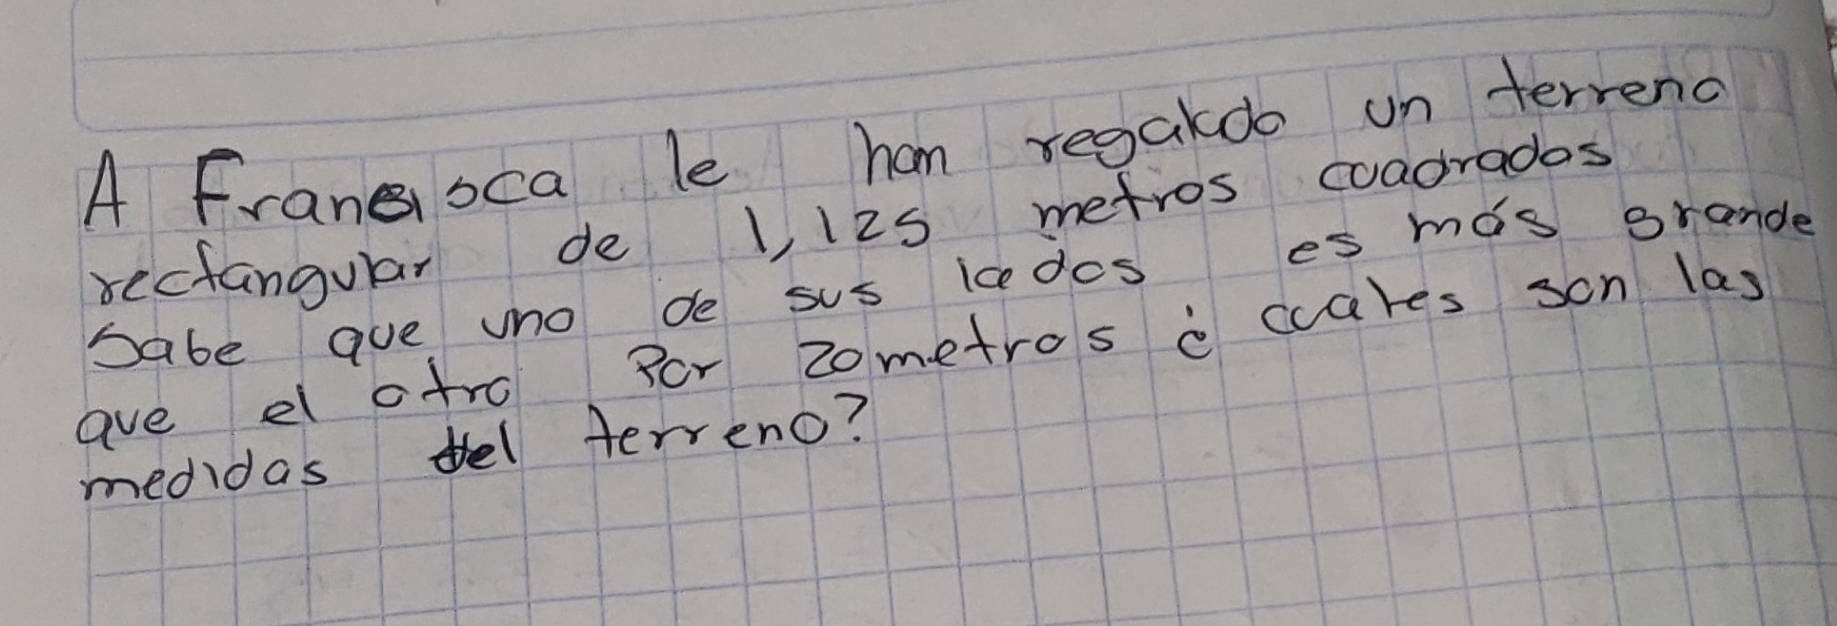 A Francisca le han regalado un terreno
rectangular de 1,125 metros cuadrados
Sabe que uno de sus lados es más grande
que el otro Por 20 metros ¿ cuales son las
medidas del terreno?